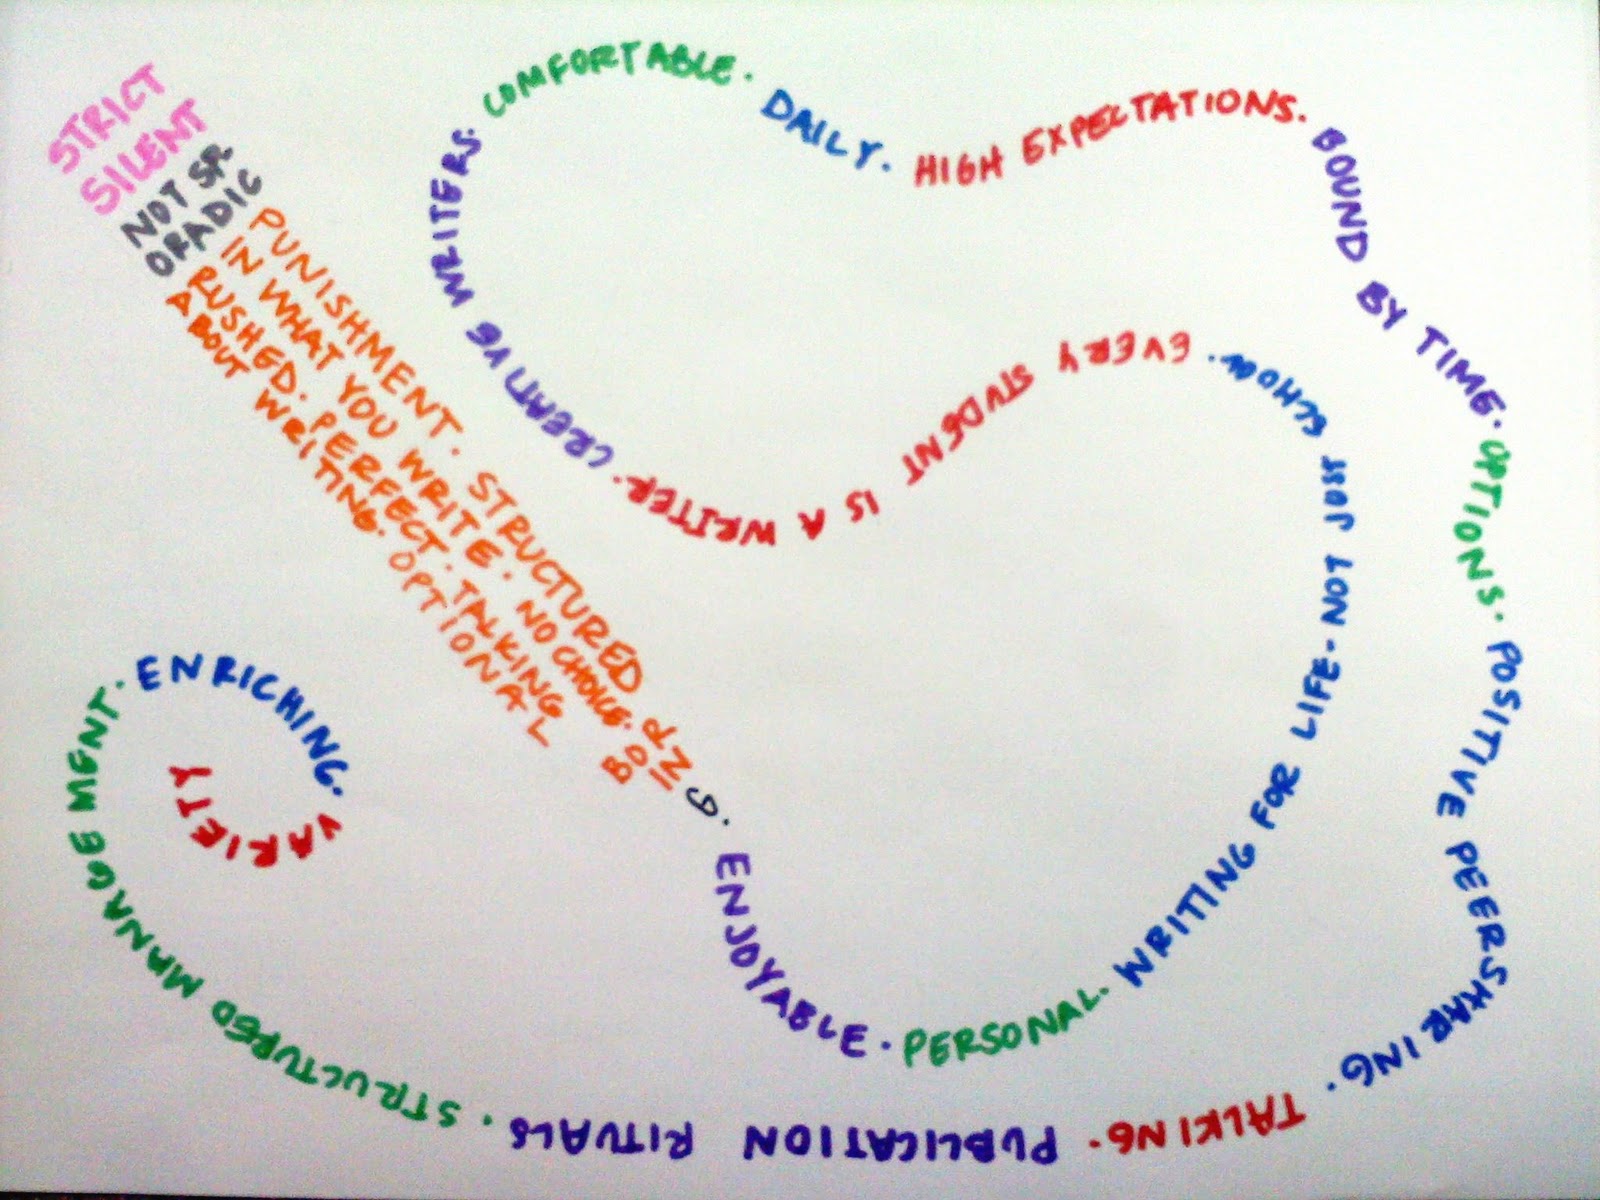 STRICT
SILENT
NOT SP-
ORADIC
PUNISHMENT. STRUCTURED
IN WHAT YOU WRITE. NO CHOICE.
RUSHED. PERFECT. TALKING
ABOUT WRITING. OPTIONAL
BORING.
ENJOYABLE.
PERSONAL.
WRITING FOR LIFE-NOT JUST SCHOOL.
EVERY STUDENT IS A WRITER.
CREATIVE WRITERS.
COMFORTABLE.
DAILY.
HIGH EXPECTATIONS.
BOUND BY TIME.
OPTIONS.
POSITIVE PEER SHARING.
TALKING.
PUBLICATION RITUALS.
STRUCTURED MANAGEMENT.
ENRICHING.
VARIETY